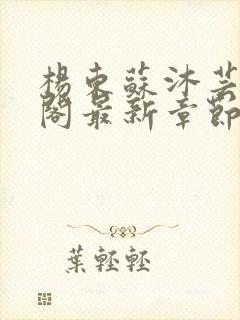 楊東蘇沐芸
閣最新章節
葉輕輕